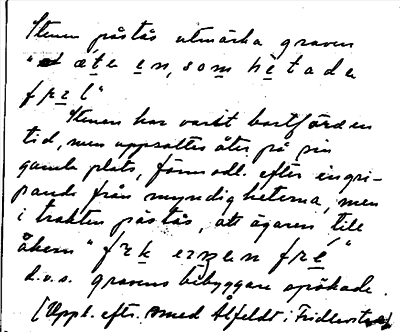 Stenen påstås utmärka graven
"at æte en, som hetade
frel"
Stenen har varit bortförd en
tid, men uppsattes åter på sin
gamla plats, förmodl. efter ingri-
pande från myndigheterna, men
i trakten påstås, att ägaren till
åkern "fek ejen fre",
d.v.s. gravens bebyggare spökade.
(Uppl. efter smed Ålfeldt i Fridlevstad)